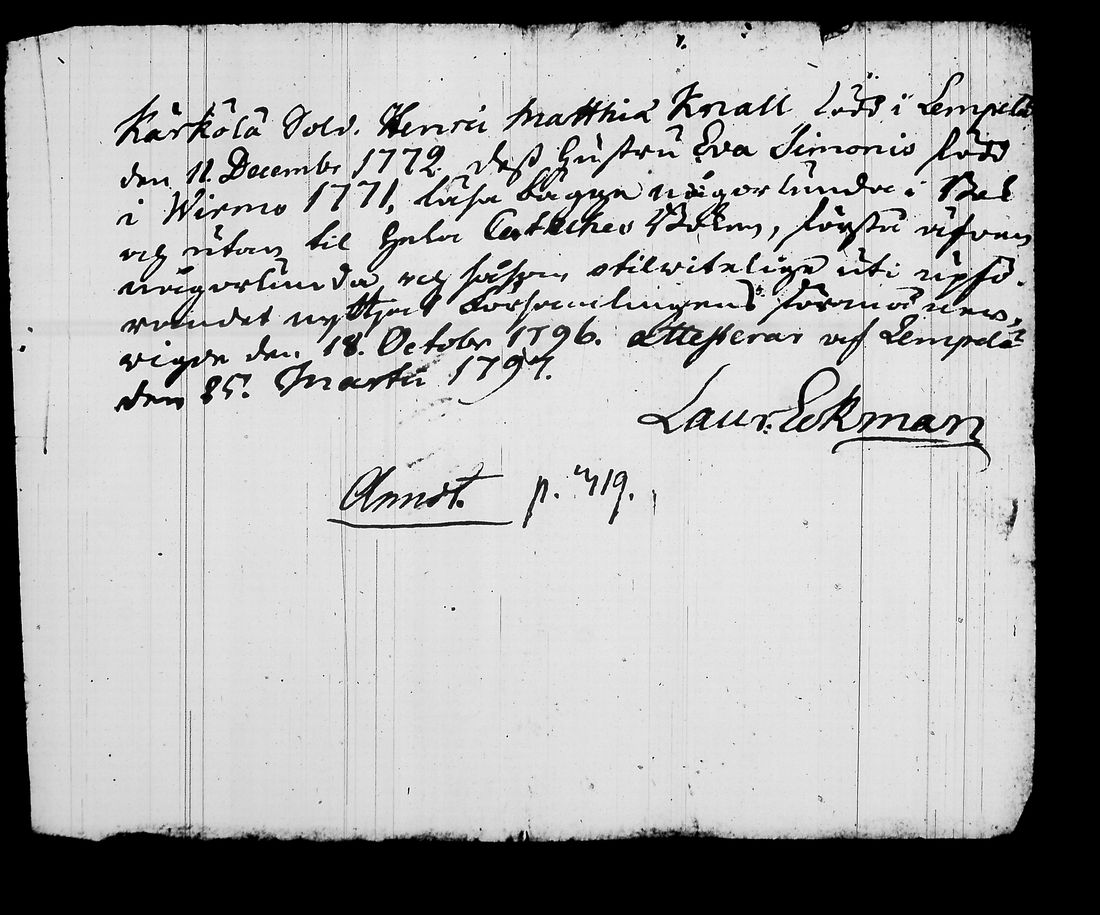 Kärkölä Sold. Henric Matthiæ Knall född i Lempelä
den 11. Decembr 1772. dess Hustru Eva Simonis född
i Wirmo 1771, läsa bägge någorlunda i Bok
och utan til hela Cateches Boken, förstå äfven
någorlunda, och såsom stilwitelige uti upfö-
randet nyttjat Församlingens förmåner,
vigde den 18. Octobr 1796. attesterar af Lempälä
den 25. Martii 1797.
Laur. Eckman
Annot. p. 419.